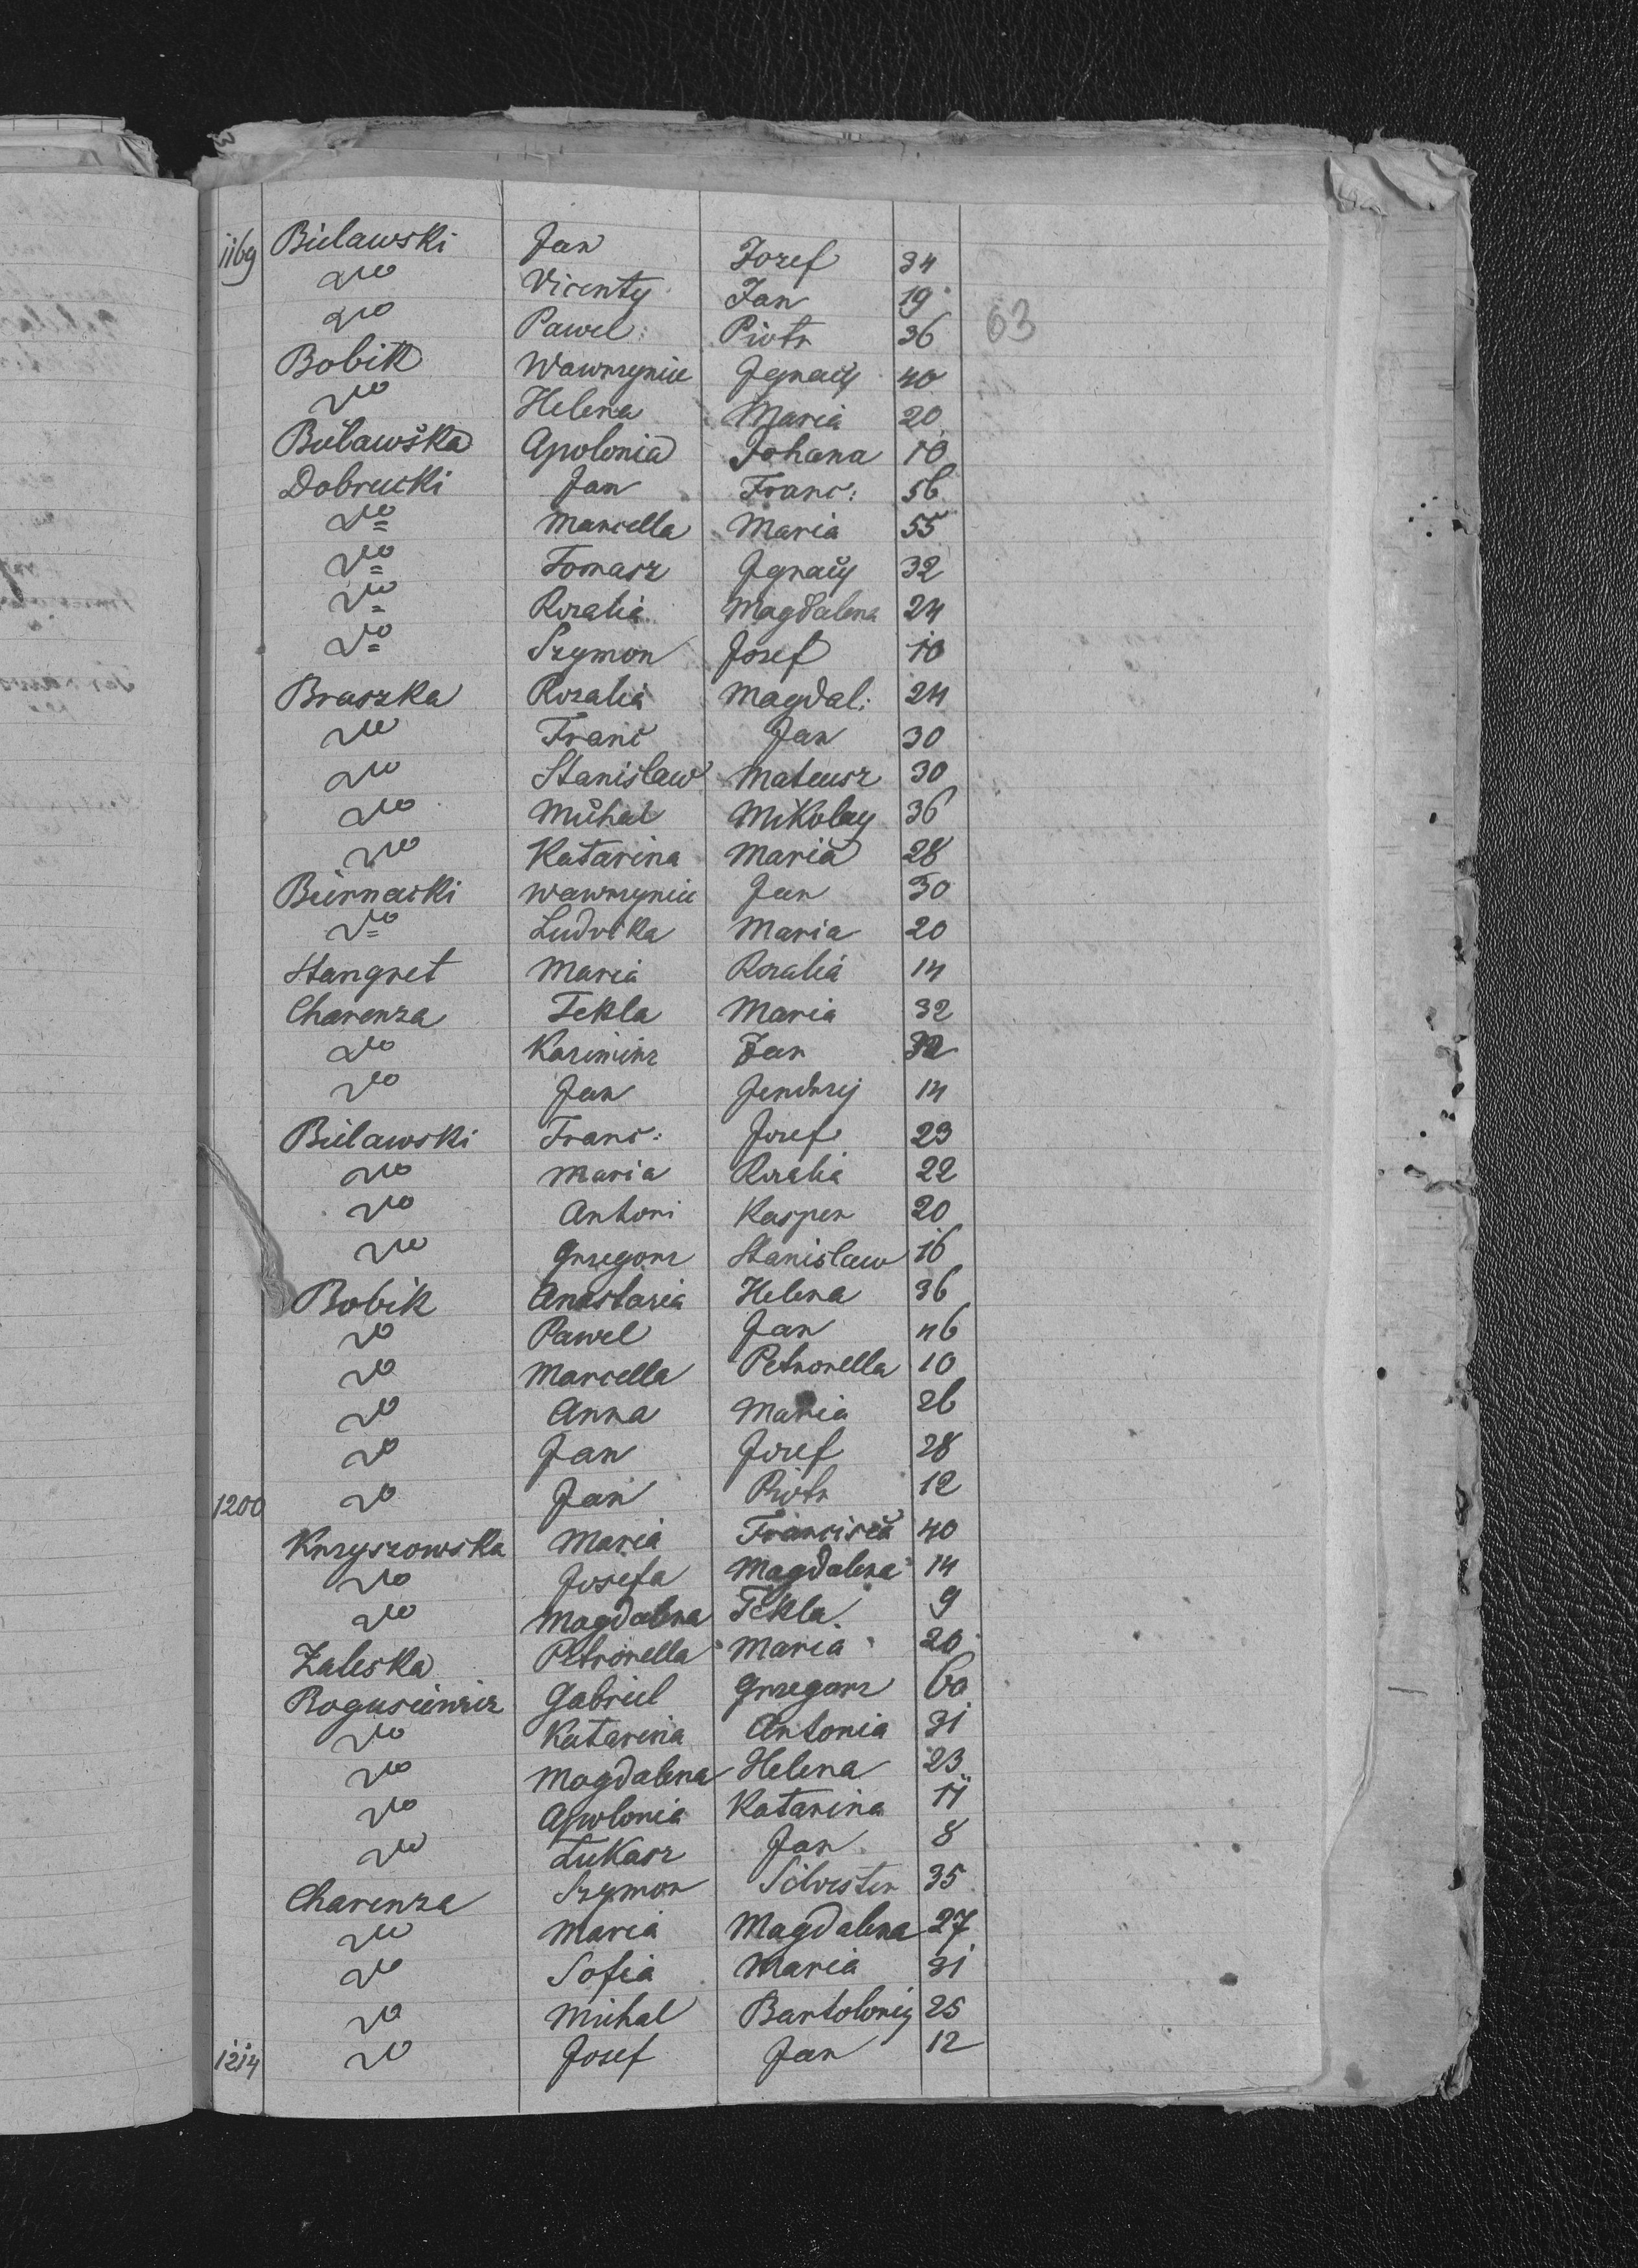 1169 Bielawski Jan Jozef 34
dto Vicenty Jan 19
dto Pawel: Piotr 36 63
Bobik Wawrzyniec Ignaciy 40
dto Helena Maria 20
Bielawska Apolonia Johana 10
Dobrucki Jan Franc: 56
dto Marcella Maria 55
dto Tomasz Ignaciy 32
dto Rozalia Magdalena 24
dto Szymon Josef 10
Braszka Rozalia Magdal: 24
dto Franc Jan 30
dto Stanislaw Mateusz 30
dto Michal Mikolay 36
dto Katarina Maria 28
Biernacki Wawrzyniec Jan 30
dto Ludvika Maria 20
Stangret Maria Rozalia 14
Charenza Tekla Maria 32
dto Kazimirz Jan
dto Jan Jendrzy 14
Bielawski Franc: Josef 23
dto Maria Rozalia 22
dto Antoni Kasper 20
dto Grzegorz Stanislaw 16
Bobik Anastazia Helena 36
dto Pawel Jan 46
dto Marcella Petronella 10
dto Anna Maria 26
dto Jan Jozef 28
1200 dto Jan Piotr 12
Krzyszowska Maria Francisca 40
dto Josefa Magdalena 14
dto Magdalena Tekla 9
Zaleska Petronella Maria 20
Bogusiewicz Gabriel Grzegorz 60
dto Katarina Antonia 31
dto Magdalena Helena 23
dto Apolonia Katarina 11
dto Lukasz Jan 8
Charenza Szymon Silvester 35
dto Maria Magdalena 27
dto Sofia Maria 31
dto Michal Bartolomiy 25
1214 dto Josef Jan 12